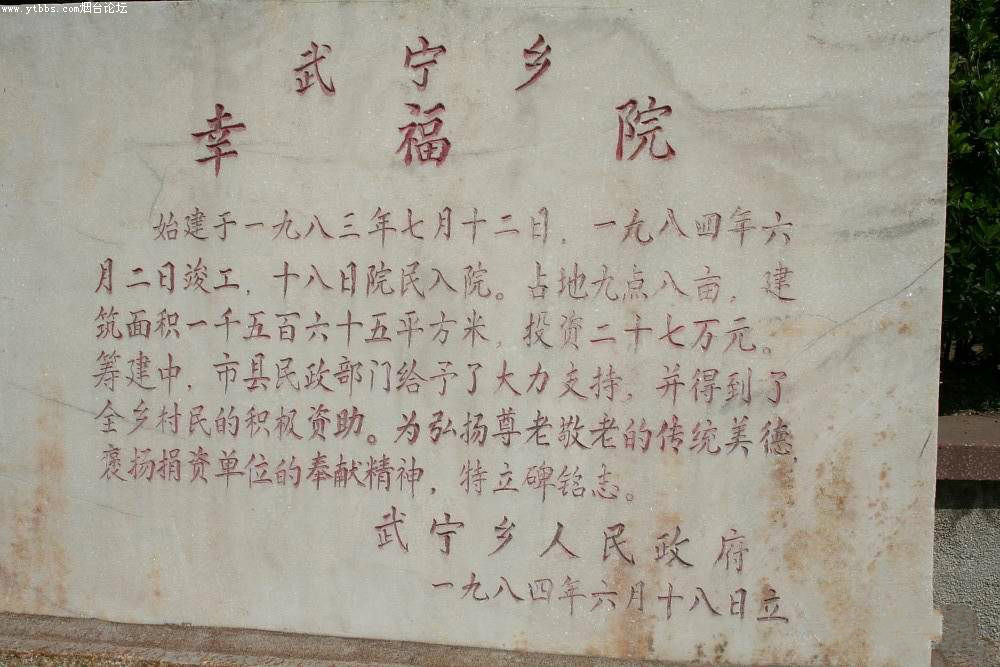 www.ytbbs.com烟台论坛
武宁乡
幸福院
始建于一九八三年七月十二日，一九八四年六
月二日竣工，十八日院民入院。占地九点八亩，建
筑面积一千五百六十五平方米，投资二十七万元。
筹建中，市县民政部门给予了大力支持，并得到了
全乡村民的积极资助。为弘扬尊老敬老的传统美德，
褒扬捐资单位的奉献精神，特立碑铭志。
武宁乡人民政府
一九八四年六月十八日立